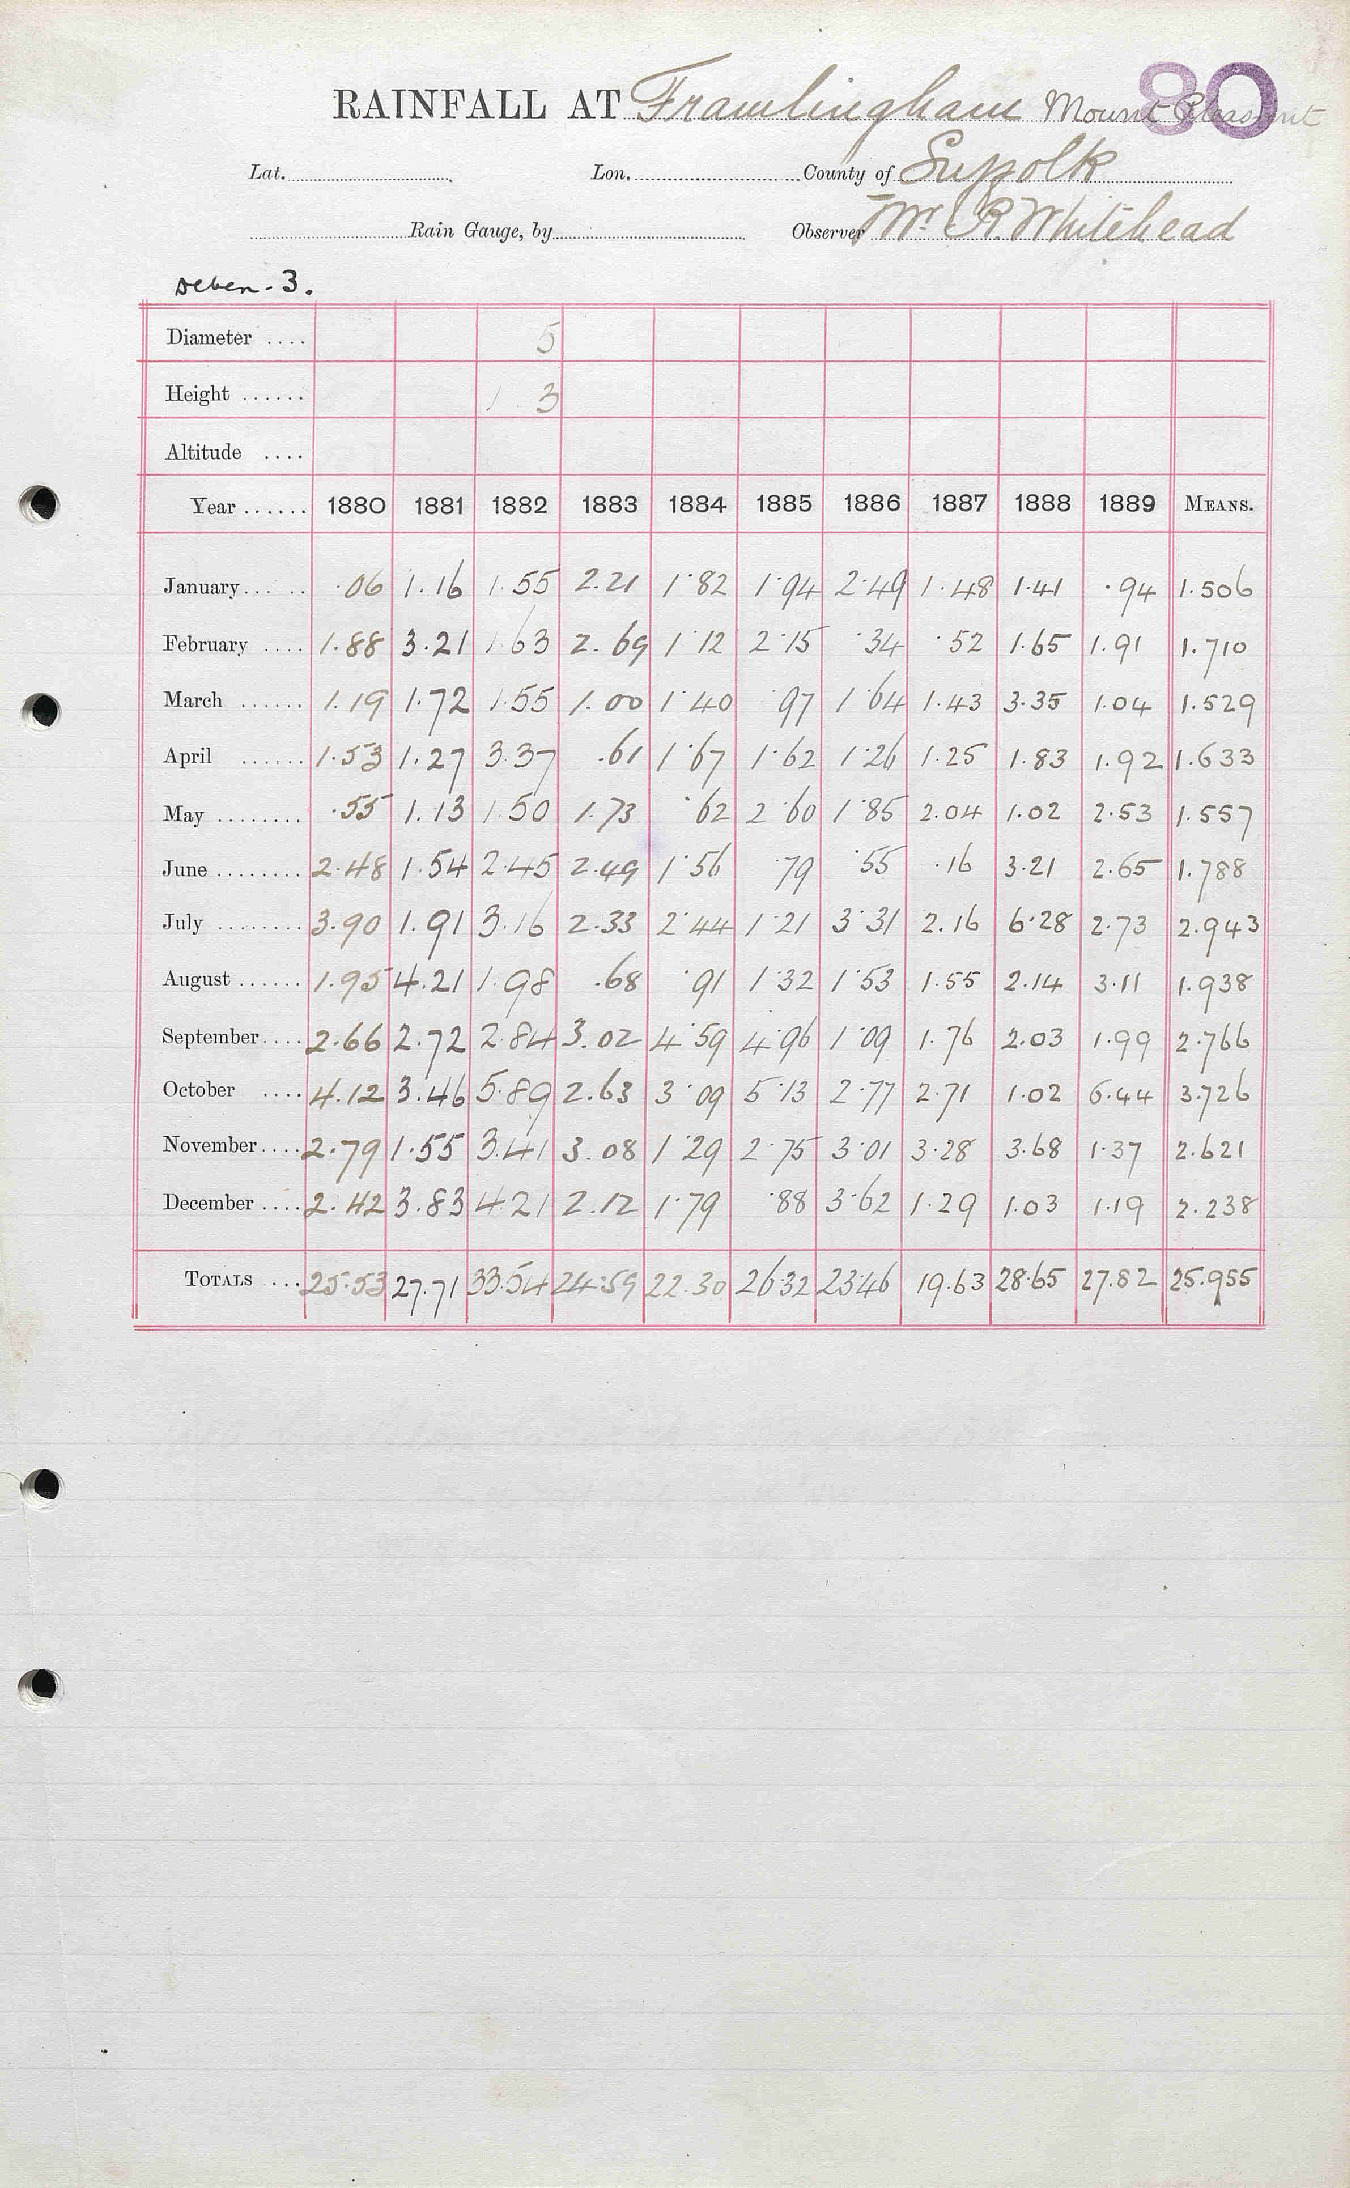 80
RAINFALL AT Framlingham Mount Pleasant
Lat. Lon. County of Suffolk
Rain Gauge, by Observer Mr. R. Whitehead
Deben - 3.
Diameter .... 5
Height ...... 3
Altitude ....
Year ...... 1880 1881 1882 1883 1884 1885 1886 1887 1888 1889 MEANS.
January ..... .06 1.16 1.55 2.21 1.82 1.94 2.49 1.48 1.41 .94 1.506
February .... 1.88 3.21 1.63 2.69 1.12 2.15 .34 .52 1.65 1.91 1.710
March ...... 1.19 1.72 1.55 1.00 1.40 .97 1.64 1.43 3.35 1.04 1.529
April ...... 1.53 1.27 3.37 .61 1.67 1.62 1.26 1.25 1.83 1.92 1.633
May ........ .55 1.13 1.50 1.73 .62 2.60 1.85 2.04 1.02 2.53 1.557
June ........ 2.48 1.54 2.45 2.49 1.56 .79 .55 .16 3.21 2.65 1.788
July ........ 3.90 1.91 3.16 2.33 2.44 1.21 3.31 2.16 6.28 2.73 2.943
August ...... 1.95 4.21 1.98 .68 .91 1.32 1.53 1.55 2.14 3.11 1.938
September .... 2.66 2.72 2.84 3.02 4.59 4.96 1.09 1.76 2.03 1.99 2.766
October .... 4.12 3.46 5.89 2.63 3.09 5.13 2.77 2.71 1.02 6.44 3.726
November .... 2.79 1.55 3.41 3.08 1.29 2.75 3.01 3.28 3.68 1.37 2.621
December .... 2.42 3.83 4.21 2.12 1.79 .88 3.62 1.29 1.03 1.19 2.238
TOTALS ... 25.53 27.71 33.54 24.59 22.30 26.32 23.46 19.63 28.65 27.82 25.955